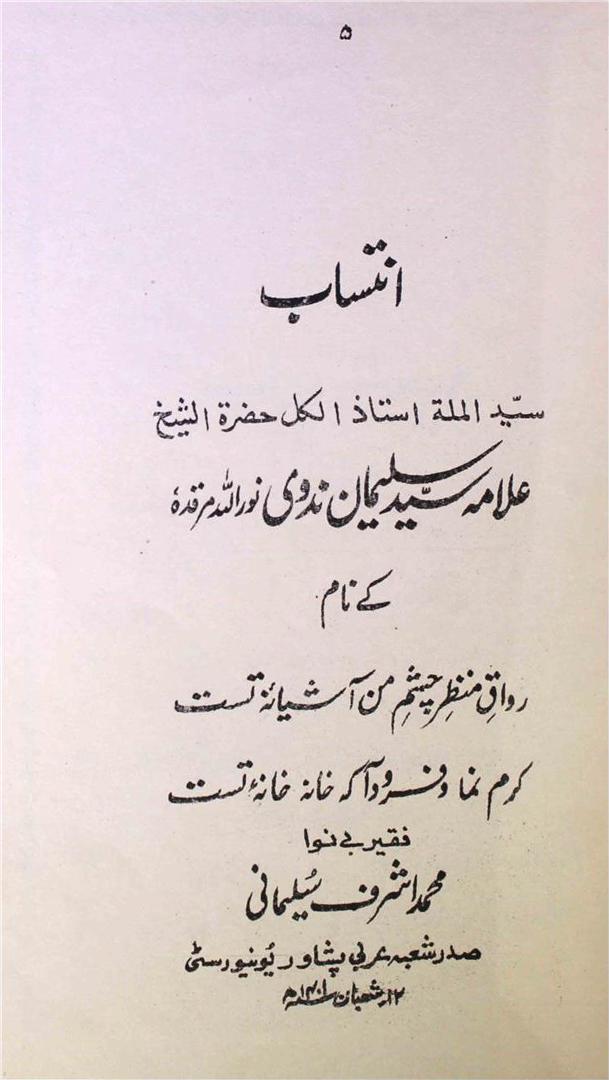 ۵
انتساب
سیّد الملة استاذ الکل حضرة الشیخ
علامہ سیّد سلیمان ندوی نور اللہ مرقدہٗ
کے نام
رواقِ منظرِ چشمِ من آشیانۂ تست
کرم نما و فرود آ کہ خانہ خانۂ تست
فقیر بے نوا
محمد اشرف سُلیمانی
صدر شعبہ عربی پشاور یُونیورسٹی
۱۲ر شعبان ۱۴۰۱ھ